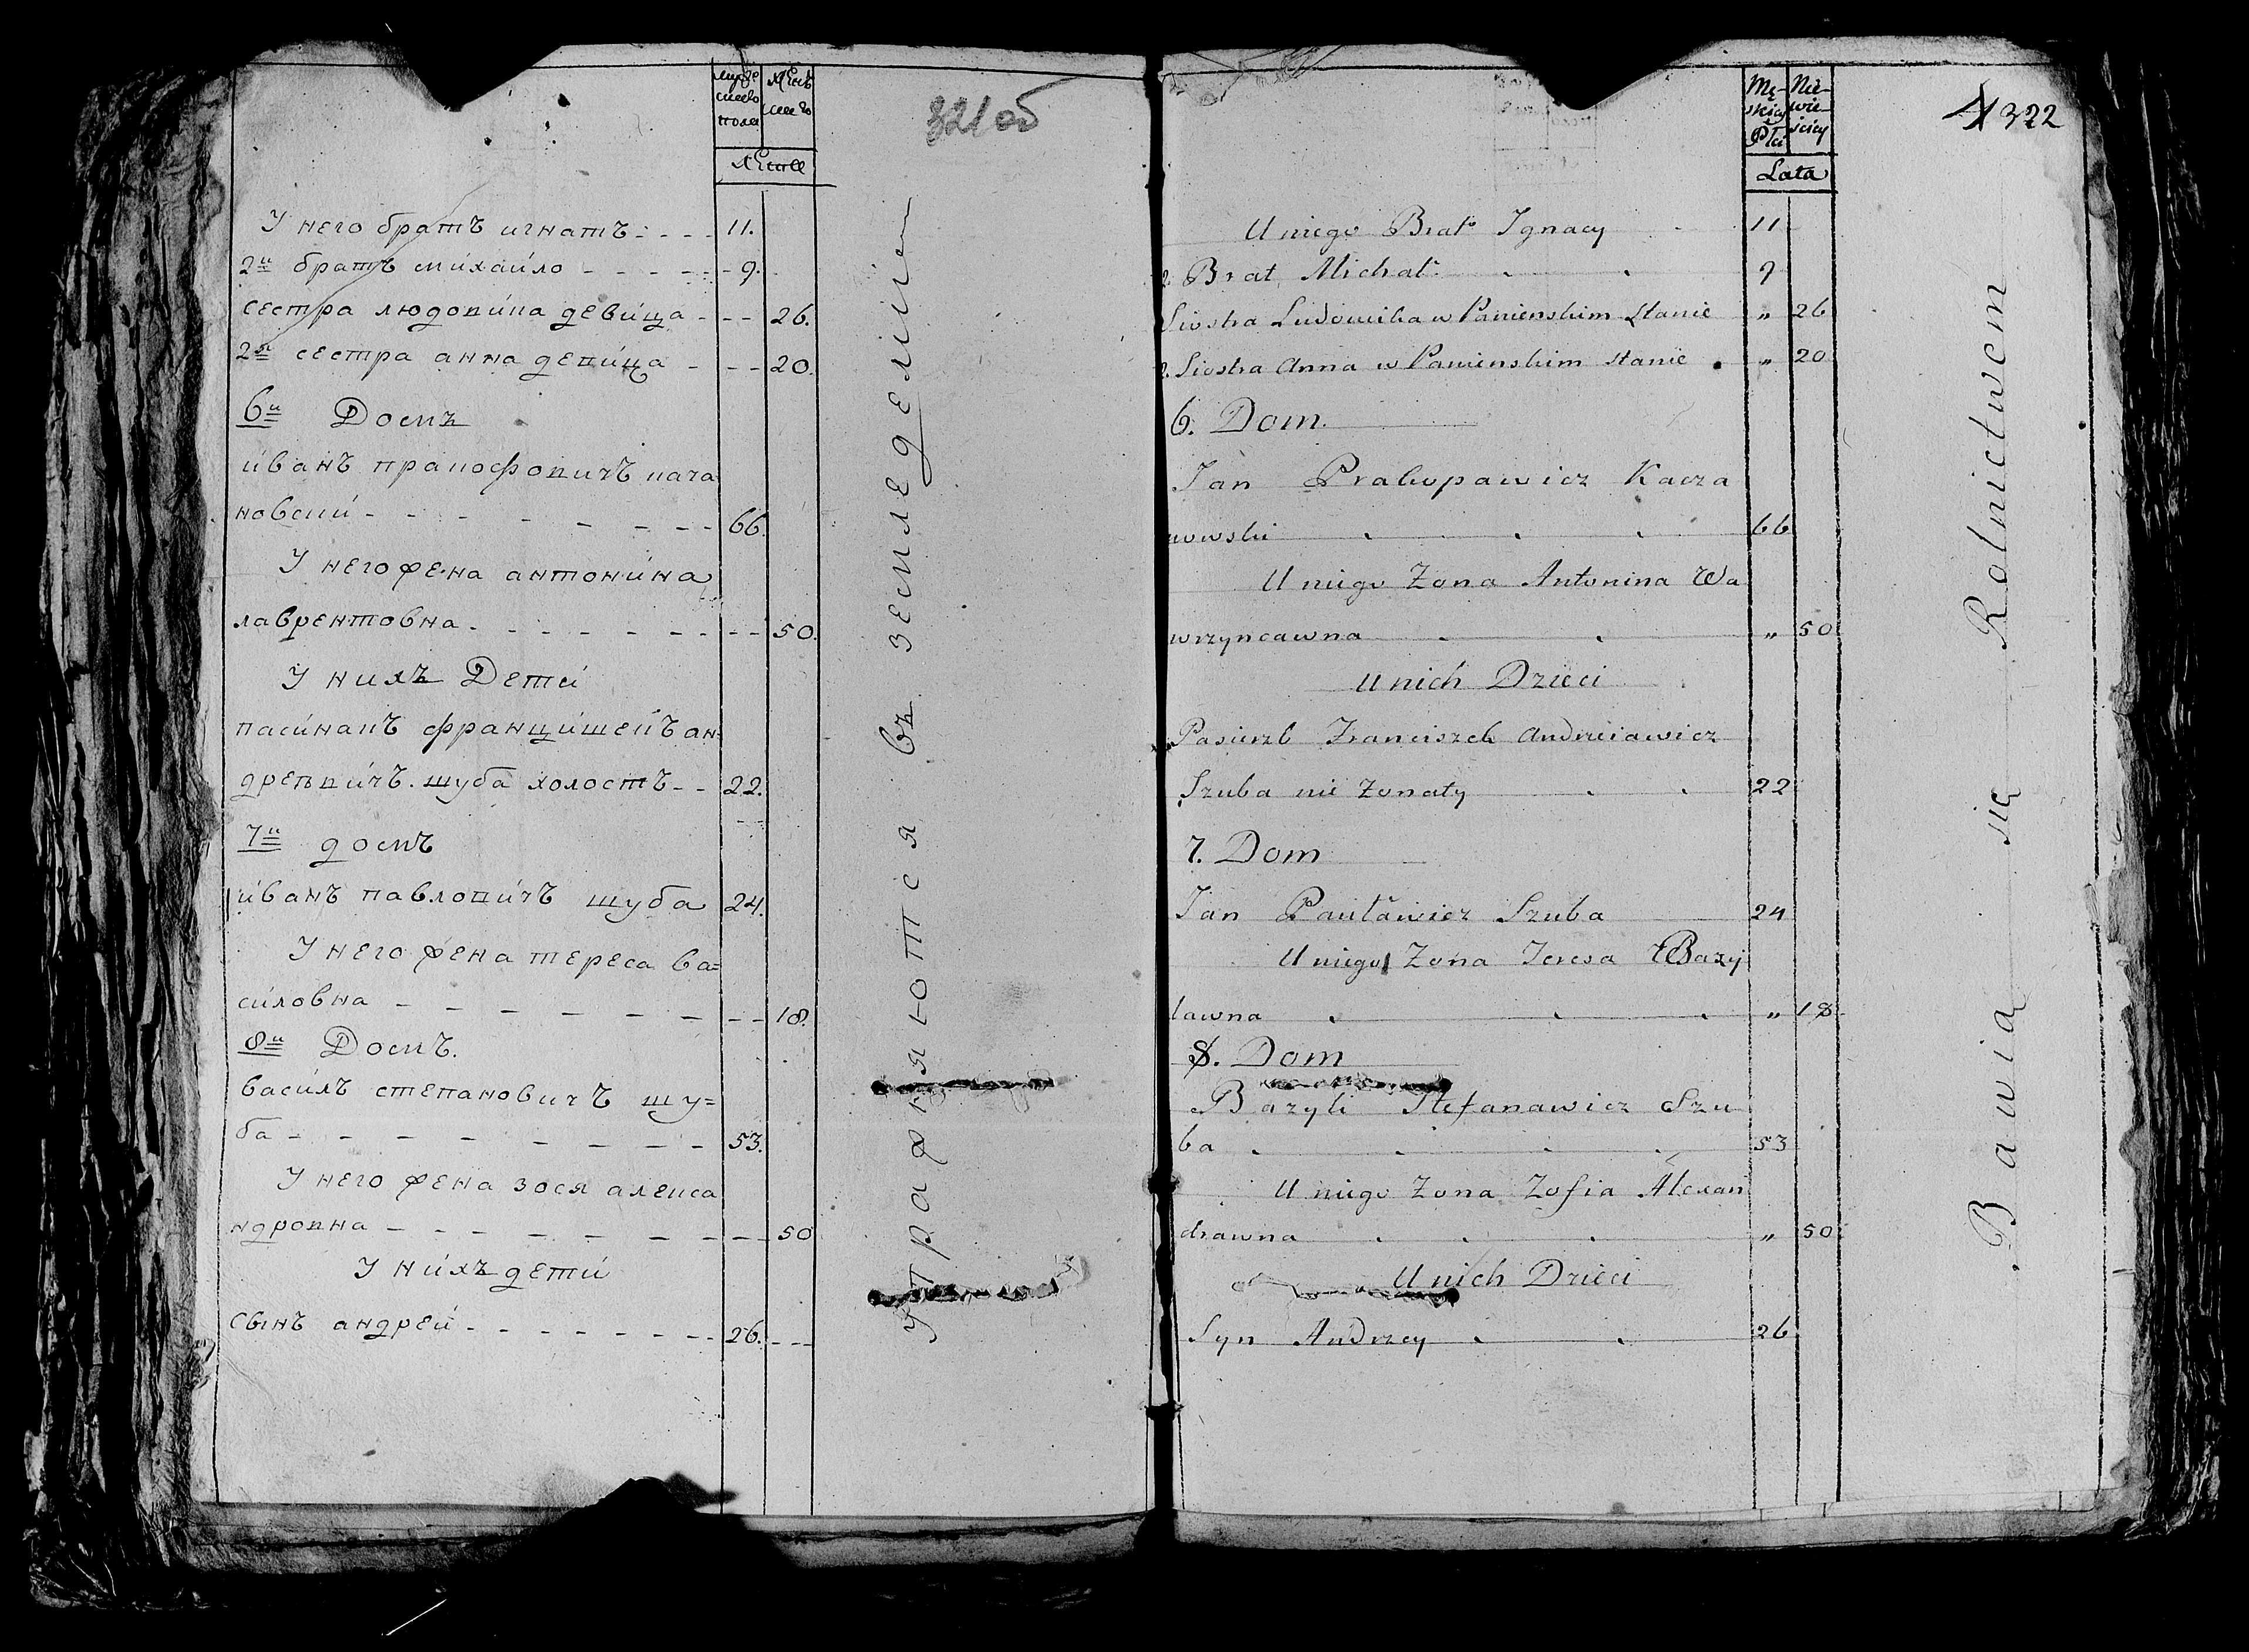 321 об
Лета
У него братъ игнатъ 11.
2й братъ михайло 9.
сестра людовика девица 26.
2я сестра анна девица 20.
6й Домъ
иванъ пракофовичъ кача
новский 66.
У него жена антонина
лаврентовна 50.
У нихъ Дети
пасинакъ францишекъ ан=
дреевичъ шуба холостъ 22.
7й домъ
иванъ павловичъ шуба 24.
У него жена тереса ва=
силовна 18.
8й Домъ.
василь степановичъ шу=
ба 53.
У него жена зося алекса
ндровна 50
У нихъ дети
сынъ андрей 26.
упражняются въ земледелии
322
Mę-
skiey
Płci
Nie-
wie-
ściey
Lata
U niego Brat Ignacy 11
2. Brat Michał 9
Siostra Ludowika w Panienskim stanie " 26
2. Siostra Anna w Panienskim stanie " 20
6. Dom
Jan Prakopawicz Kacza
nowski 66
U niego Zona Antonina Wa
wrzyncawna " 50
U nich Dzieci
Pasierzb Franciszek Andrzeiawicz
Szuba nie Zonaty 22
7. Dom
Jan Pawławicz Szuba 24
U niego Zona Teresa Bazy
lawna " 18
8. Dom
Bazyli Stefanawicz Szu
ba 53
U niego Zona Zofia Alexan
drawna " 50
U nich Dzieci
Syn Andrzey 26
Bawią się Rolnictwem